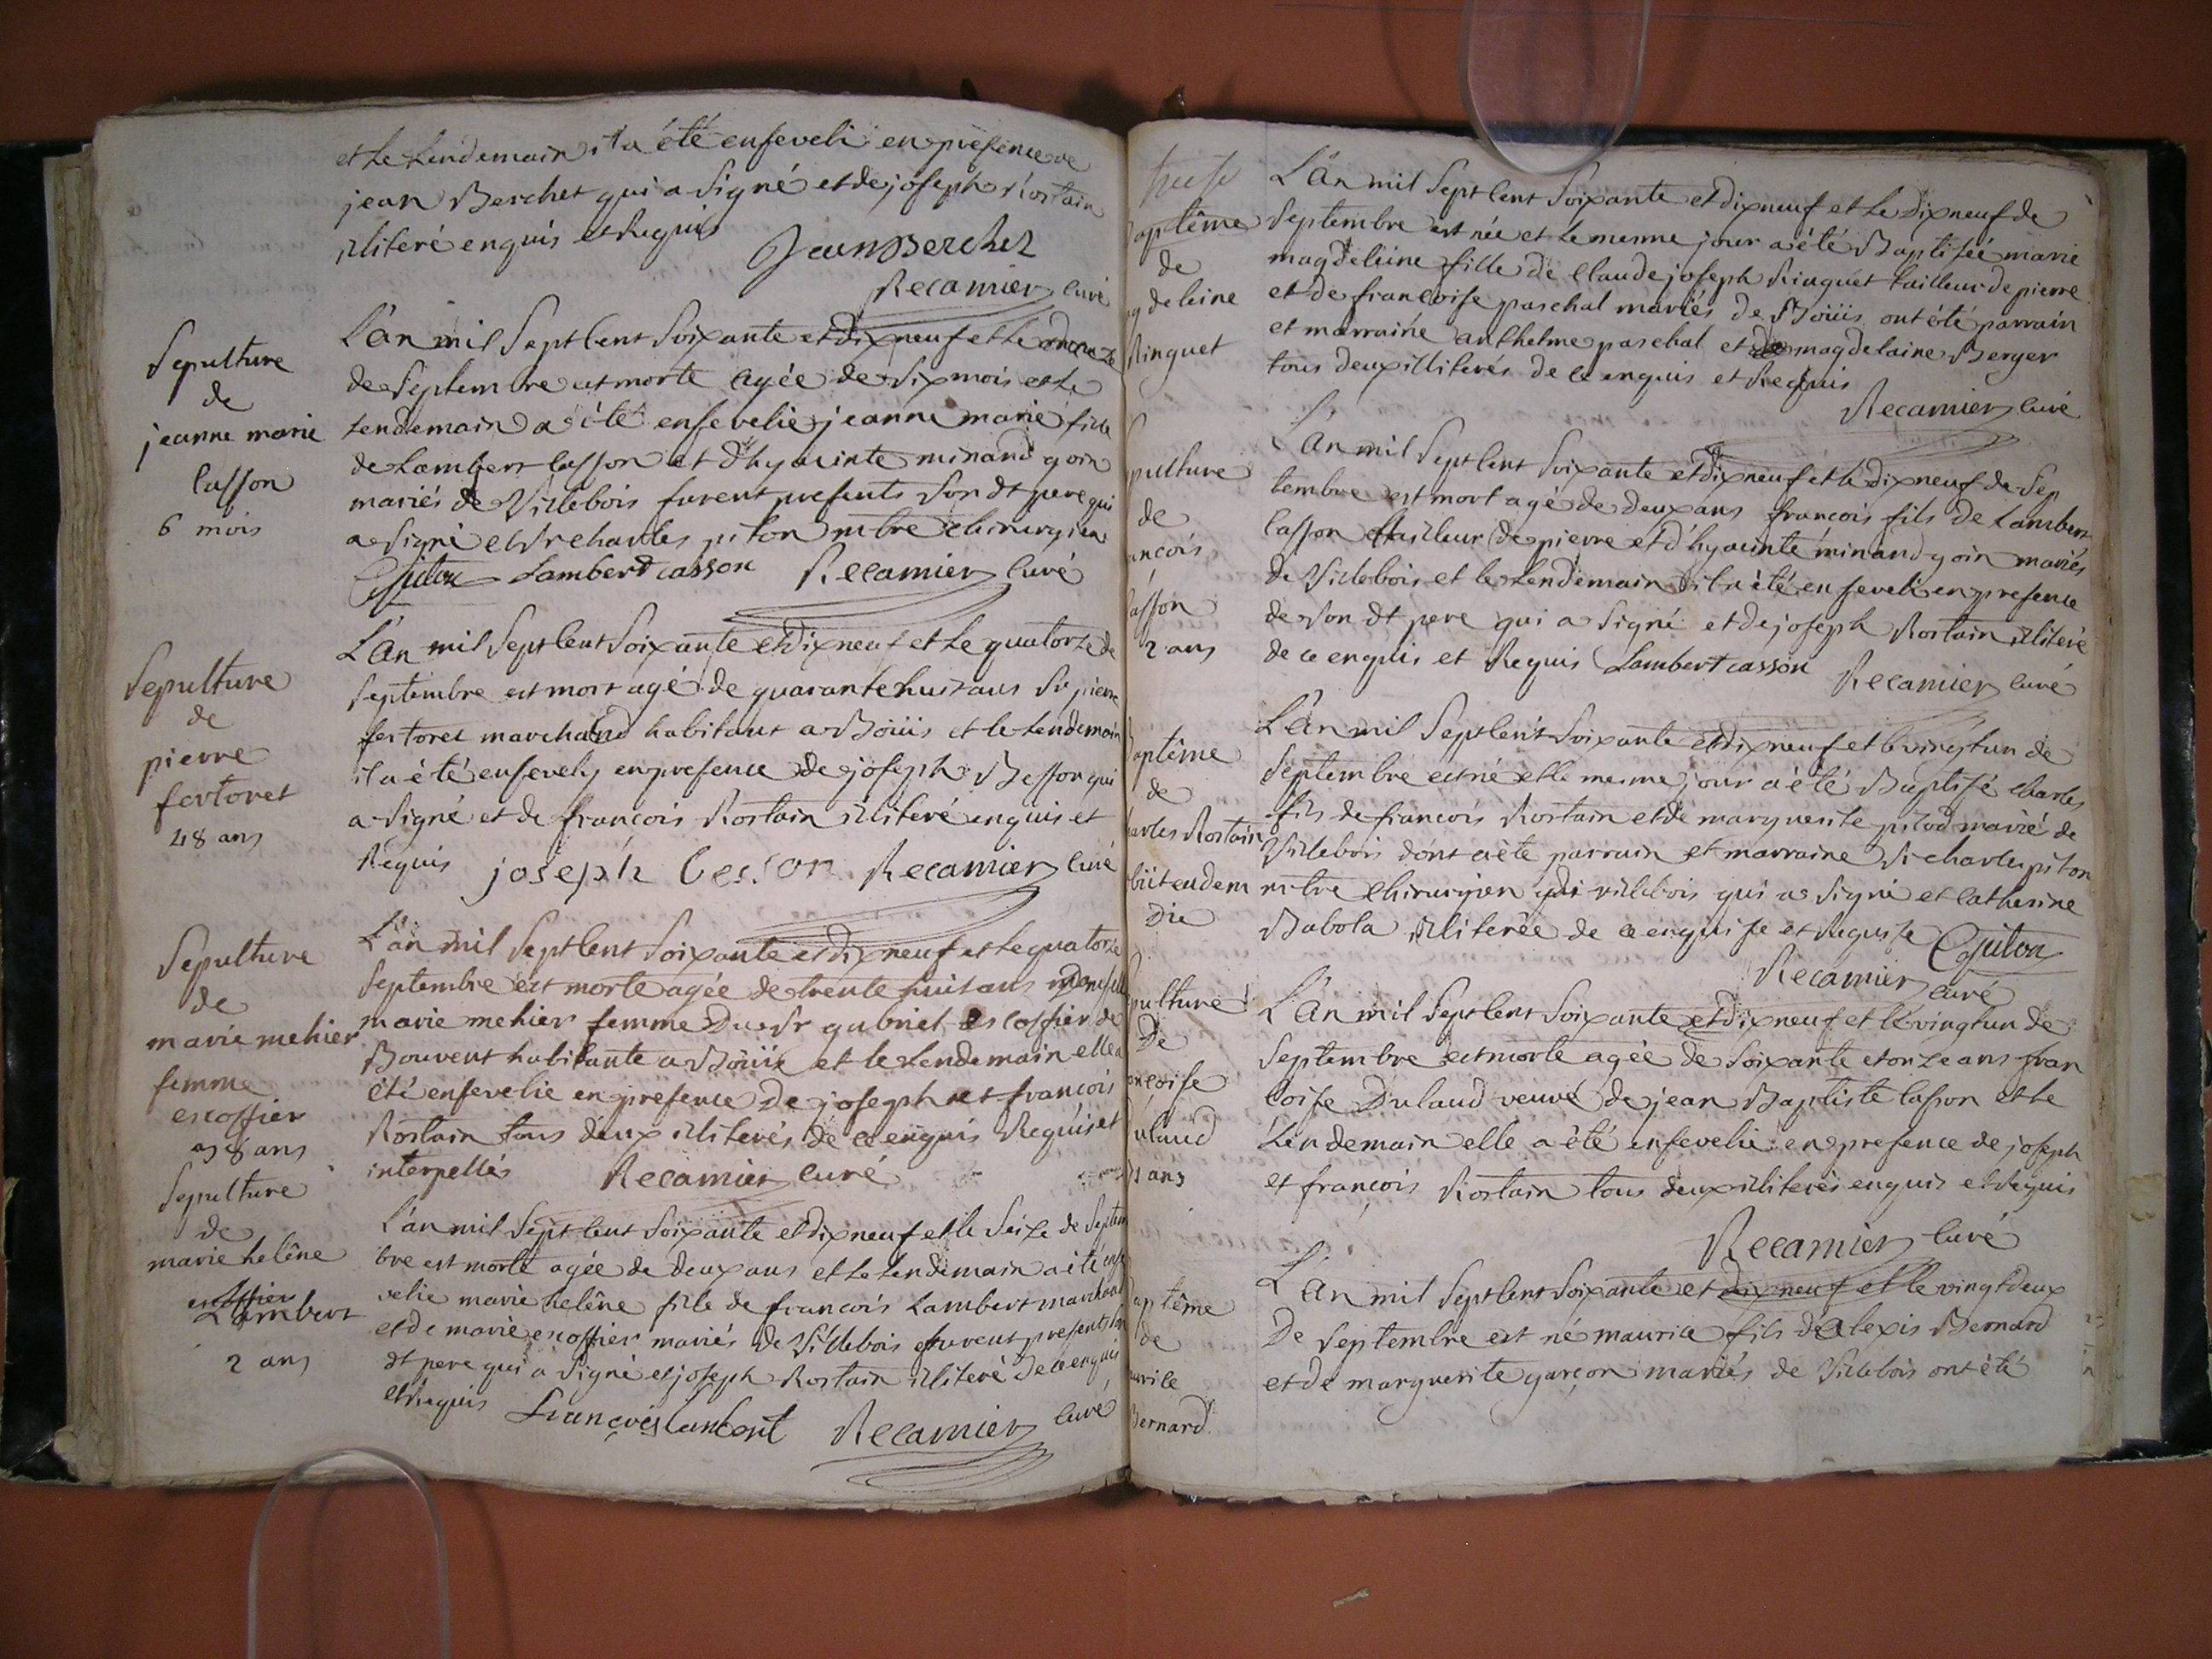 et le lendemain il a été enseveli en presence de
jean Berchet qui a signé et de joseph Rostain
illiteré enquis et Requis
Jean Berchet
Recamier curé
Sepulture
de
jeanne marie
Casson
6 mois
L'an mil Sept Cent Soixante et dix neuf et le onze
de Septembre est morte agée de Six mois et le
lendemain a été ensevelie jeanne marie fille
de Lambert Casson et d'hyacinte minand goin
mariés de Villebois furent presents Son dt pere qui
a Signé et Sr charles piton mtre chirurgien
CPiton Lambert casson Recamier curé
Sepulture
de
pierre
fertoret
48 ans
L'an mil Sept Cent Soixante et dix neuf et le quatorze de
Septembre est mort agé de quarante huit ans Sr pierre
fertoret marchand habitant a Boüis et le lendemain
il a été ensevely en presence de joseph Besson qui
a Signé et de françois Rostain illiteré enquis et
Requis joseph besson Recamier curé
Sepulture
de
marie mehier
femme
escoffier
38 ans
L'an mil Sept Cent Soixante et dix neuf et le quatorze
Septembre est morte agée de trente huit ans demlle
marie mehier femme Du Sr gabriel escoffier de
Bouvent habitante a Boüis et le Lendemain elle a
été ensevelie en presence de joseph et françois
Rostain tous deux illiterés de ce enquis Requis et
interpellés Recamier curé
Sepulture
de
marie helêne
escoffier
Lambert
2 ans
L'an mil Sept Cent Soixante et dix neuf et le Seize de Septem
bre est morte agée de deux ans et le lendemain a été ense
velie marie helêne fille de françois Lambert marchand
et de marie escoffier mariés de Villebois furent presents Son
dt pere qui a Signé et joseph Rostain illiteré de ce enquis
et Requis françois lambert Recamier curé
aptême
de
gdeleine
Ringuet
L'an mil Sept Cent Soixante et dix neuf et le dix neuf de
Septembre est née et le mesme jour a été Baptisée marie
magdeleine fille de Claude joseph Ringuet tailleur de pierre
et de francoise paschal mariés de Boüis ont été parrain
et marraine anthelme paschal et magdelaine Berger
tous deux illiterés de ce enquis et Requis
Recamier curé
pulture
de
ançois
asson
2 ans
L'an mil Sept Cent Soixante et dix neuf et le dix neuf de Sep
tembre est mort agé de deux ans françois fils de Lambert
Casson tailleur de pierre et d'hyacinte minand goin mariés
de Villebois et le Lendemain il a été enseveli en presence
de Son dt pere qui a Signé et de joseph Rostain illiteré
de ce enquis et Requis Lambert casson Recamier curé
aptême
de
arles Rostain
obiit eadem
Die
L'an mil Sept Cent Soixante et dix neuf et le vingt un de
Septembre est né et le mesme jour a été Baptisé charles
fils de francois Rostain et de marguerite pitod mariés de
Villebois dont a été parrain et marraine Sr charles piton
mtre chirurgien de villebois qui a Signé et Catherine
Babola illiterée de ce enquise et Requise CPiton
Recamier curé
pulture
De
ançoise
ulaud
71 ans
L'an mil Sept Cent Soixante et dix neuf et le vingt un de
Septembre est morte agée de Soixante et onze ans fran
coise Dulaud veuve de jean Baptiste Casson et le
Lendemain elle a été ensevelie en presence de joseph
et françois Rostain tous deux illiterés enquis et Requis
Recamier curé
aptême
de
aurice
Bernard
L'an mil Sept Cent Soixante et dix neuf et le vingt deux
De Septembre est né maurice fils de alexis Bernard
et de marguerite garçon mariés de Villebois ont été